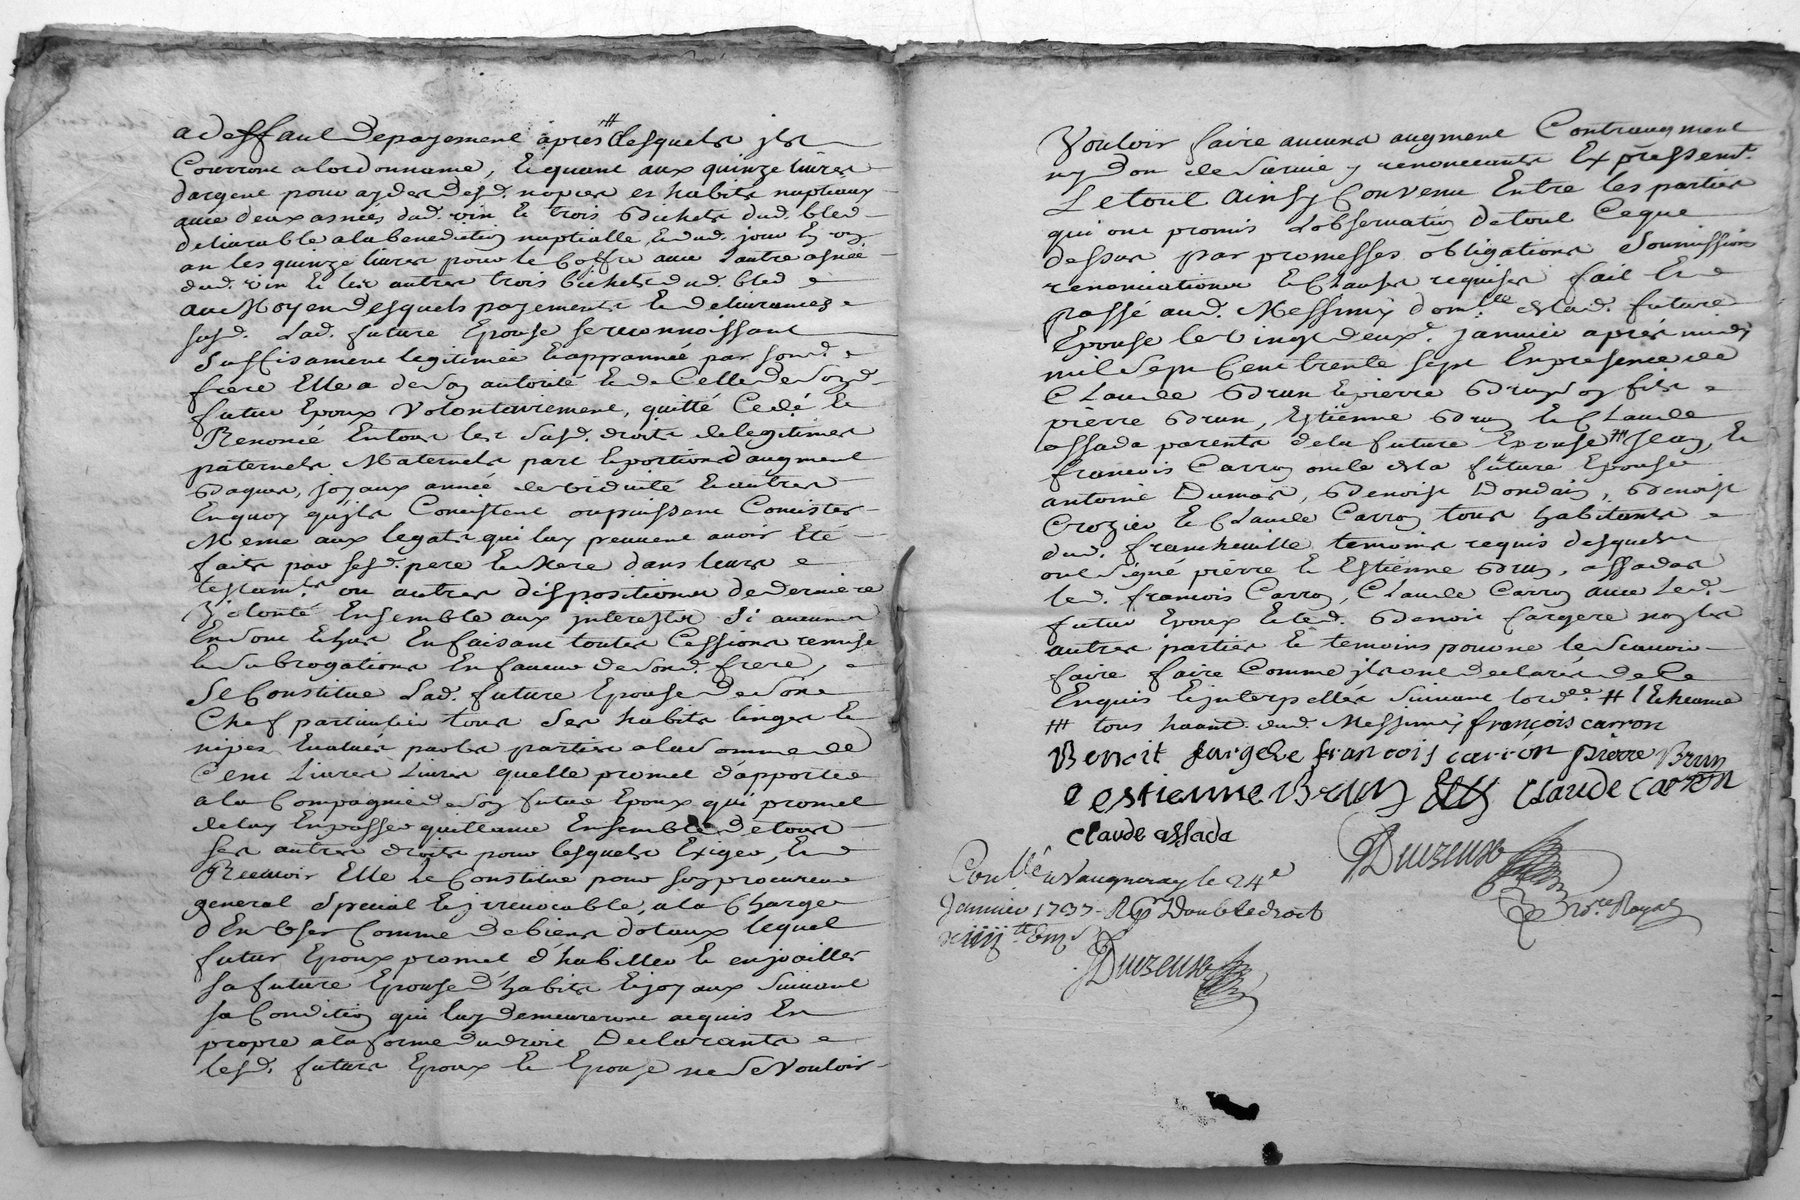 a deffaut depayement après # lesquels ils
Courront alordonnance, Et quant aux quinze livres
dargent pour ayder desd. nopces es habits nuptiaux
avec deux asnées dud. vin Et trois Bichets dud. bled
delivrable ala benediction nuptialle, Et dud. jour En un
an les quinze livres pour le Coffre avec l'autre asnée
dud. vin Et les autres trois bichets dud. bled
au Moyen desquels payements Et delivrances
susd. Lad. future Epouse se reconnoissant
suffisament legitimée Et apprannée par sond.
frere Elle a de son autorité Et de Celle de sond.
futur Epoux Volontairement, quitté Cedé Et
Renoncé En tous les susd. droits de legitimes
paternels Maternels part Et portions d'augment
Bagues, joyaux année de viduité Et autres
En quoy qu'ils Consistent ou puissent Consister
Meme aux legats qui luy peuvent avoir Eté
faits par sesd. pere Et Mere dans leurs
testam.ts ou autres dispositions de derniere
Volonté Ensemble aux interests si aucuns
En sont Ehus En faisant toutes Cessions remise
Et subrogations En faveur de sond. frere,
Se Constitue Lad. future Epouse de son
Chef particulier tous ses habits linges Et
nipes Evalués par les parties ala somme de
Cent Livres Livres quelle promet d'apporter
ala Compagnie de son futur Epoux qui promet
de luy En passer quittance Ensemble de tous
ses autres droits pour lesquels Exiger, Et
Recevoir Elle le Constitue pour son procureur
general special Et irrevocable, ala Charge
d'En User Comme de biens dotaux lequel
futur Epoux promet d'habiller Et enjoailler
sa future Epouse d'habits Et joyaux suivant
sa Condition qui luy demeureront acquis En
propre ala forme du droit Declarants
lesd. futurs Epoux Et Epouse ne se Vouloir
Vouloir faire aucuns augment Contraugment
ny don de survie y renonceants Expressemt.
Le tout Ainsy Convenu Entre les parties
qui ont promis L'observation de tout Ceque
dessus par promesses obligations soumissions
renonciations Et Clauses requises fait Et
passé aud. Messimy domlle de lad. future
Epouse le vingt deuxe. janvier après midy
mil sept Cent trente sept En presence de
Claude Brun Et pierre Brun son fils
pierre Brun, Estienne Brun Et Claude
assada parents de la future Epouse # Jean, Et
francois Carron oncle de la future Epouse
antoine Dumas, Benoist Dondain, Benoist
Crozier Et Claude Carron tous habitants
dud. francheville temoins requis desquels
ont signé pierre Et Estienne Brun, assadas
led. francois Carron, Claude Carron avec led.
futur Epoux Et led. Benoit fargere non les
autres parties Et temoins pour ne le scavoir
faire faire Comme ils ont declarés de Ce
Enquis Et interpellés suivant lordce # l'Etienne
# tous haant. dud. Messimy françois carron
Benoit fargere francois carron pierre Brun
estienne Brun Claude Carron
claude assada
Conllé a Vaugneray le 24e
Janvier 1737. Rs Double droit
Duizeux
Nre. Royal
Duizeux